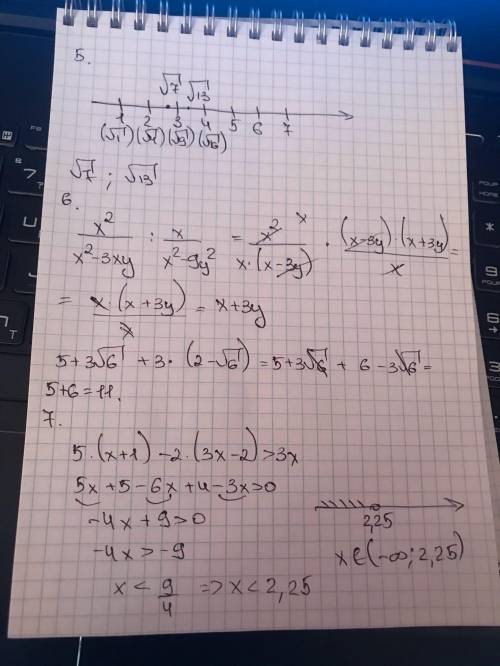 5.
√7 √13
1 2 3 4 5 6 7
(√1) (√4) (√9) (√16)
√7 ; √13
6.
x²/(x²-3xy) : x/(x²-9y²) = x²/(x·(x-3y)) · (x-3y)·(x+3y)/x =
= x·(x+3y)/x = x+3y
5+3√6 + 3·(2-√6) = 5+3√6 + 6-3√6 =
5+6=11.
7.
5·(x+1)-2·(3x-2)>3x
5x+5-6x+4-3x>0
-4x+9>0
2,25
-4x>-9
x∈(-∞;2,25)
x < 9/4 => x < 2,25